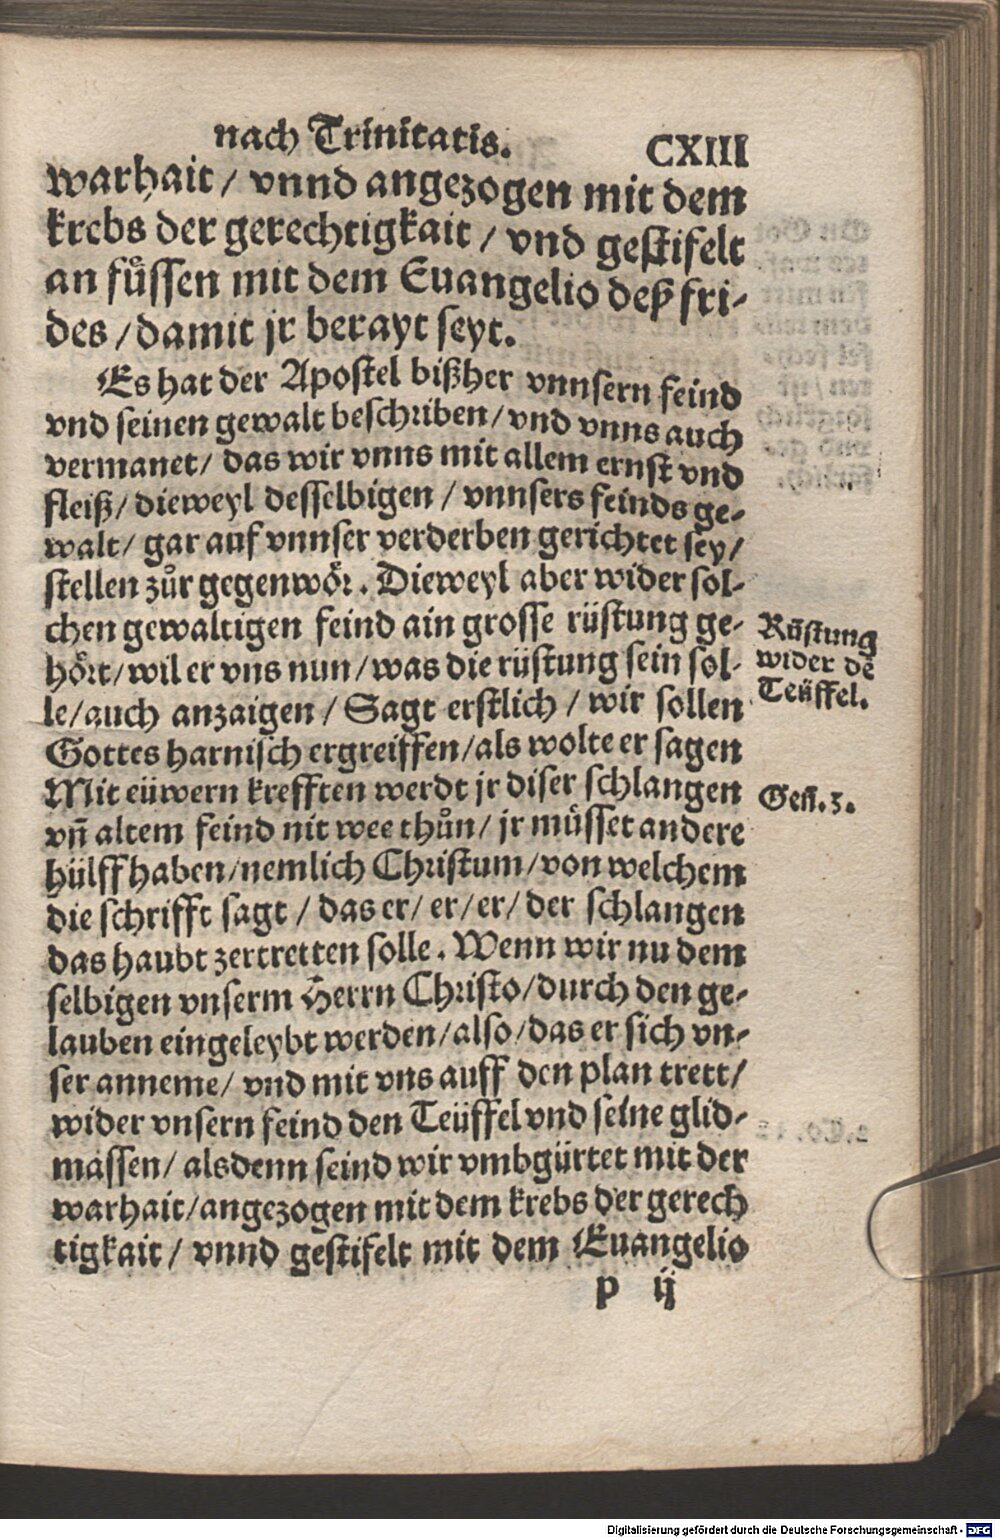 nach Trinitatis. CXIII
warhait / vnnd angezogen mit dem
krebs der gerechtigkait / vnd gestifelt
an fuͤssen mit dem Euangelio deß fri-
des / damit jr berayt seyt.
Es hat der Apostel bißher vnnsern feind
vnd seinen gewalt beschriben / vnd vnns auch
vermanet / das wir vnns mit allem ernst vnd
fleiß / dieweyl desselbigen / vnnsers feinds ge-
walt / gar auf vnnser verderben gerichtet sey /
stellen zuͦr gegenwoͤr. Dieweyl aber wider sol-
chen gewaltigen feind ain grosse rüstung ge-
hoͤrt / wil er vns nun / was die rüstung sein sol-
le / auch anzaigen / Sagt erstlich / wir sollen
Gottes harnisch ergreiffen / als wolte er sagen
Mit eüwern krefften werdt jr diser schlangen
vñ altem feind nit wee thuͦn / jr muͤsset andere
hülff haben / nemlich Christum / von welchem
die schrifft sagt / das er / er / er / der schlangen
das haubt zertretten solle. Wenn wir nu dem
selbigen vnserm Herrn Christo / durch den ge-
lauben eingeleybt werden / also / das er sich vn-
ser anneme / vnd mit vns auff den plan trett /
wider vnsern feind den Teüffel vnd seine glid-
massen / alsdenn seind wir vmbgürtet mit der
warhait / angezogen mit dem krebs der gerech
tigkait / vnnd gestifelt mit dem Euangelio
p ij
Rüstung
wider dē
Teüffel.
Gen. 3.
Digitalisierung gefördert durch die Deutsche Forschungsgemeinschaft - DFG